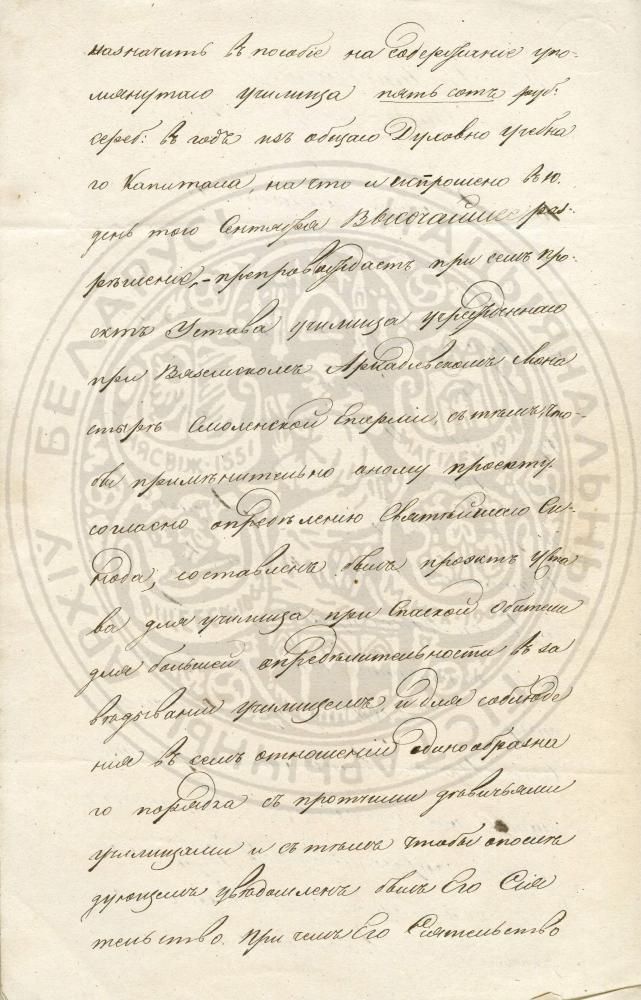 назначить въ пособіе на содержаніе упо-
мянутаго училища пять сотъ руб:
сереб: въ годъ изъ общаго Духовно учебна
го Капитала, на что и испрошено въ 10.
день того Сентября Высочайшее раз-
рѣшеніе,– препровождаетъ при семъ про-
эктъ Устава училища учрежденнаго
при Вяземскомъ Аркадіевскомъ Мона
стырѣ Смоленской Епархіи, съ тѣмъ, что-
бы примѣнительно оному проэкту
согласно опредѣленію Святѣйшаго Си-
нода, составленъ былъ проэктъ Уста
ва для училища при Спаской Обители
для большей опредѣлительности въ за
вѣдываніи училищемъ, и для соблюде
нія въ семъ отношеніи единообразна
го порядка съ протчими дѣвичьями
училищами и съ тѣмъ чтобы о послѣ
дующемъ увѣдомленъ былъ Его Сія
тельство. При чемъ Его Сіятельство